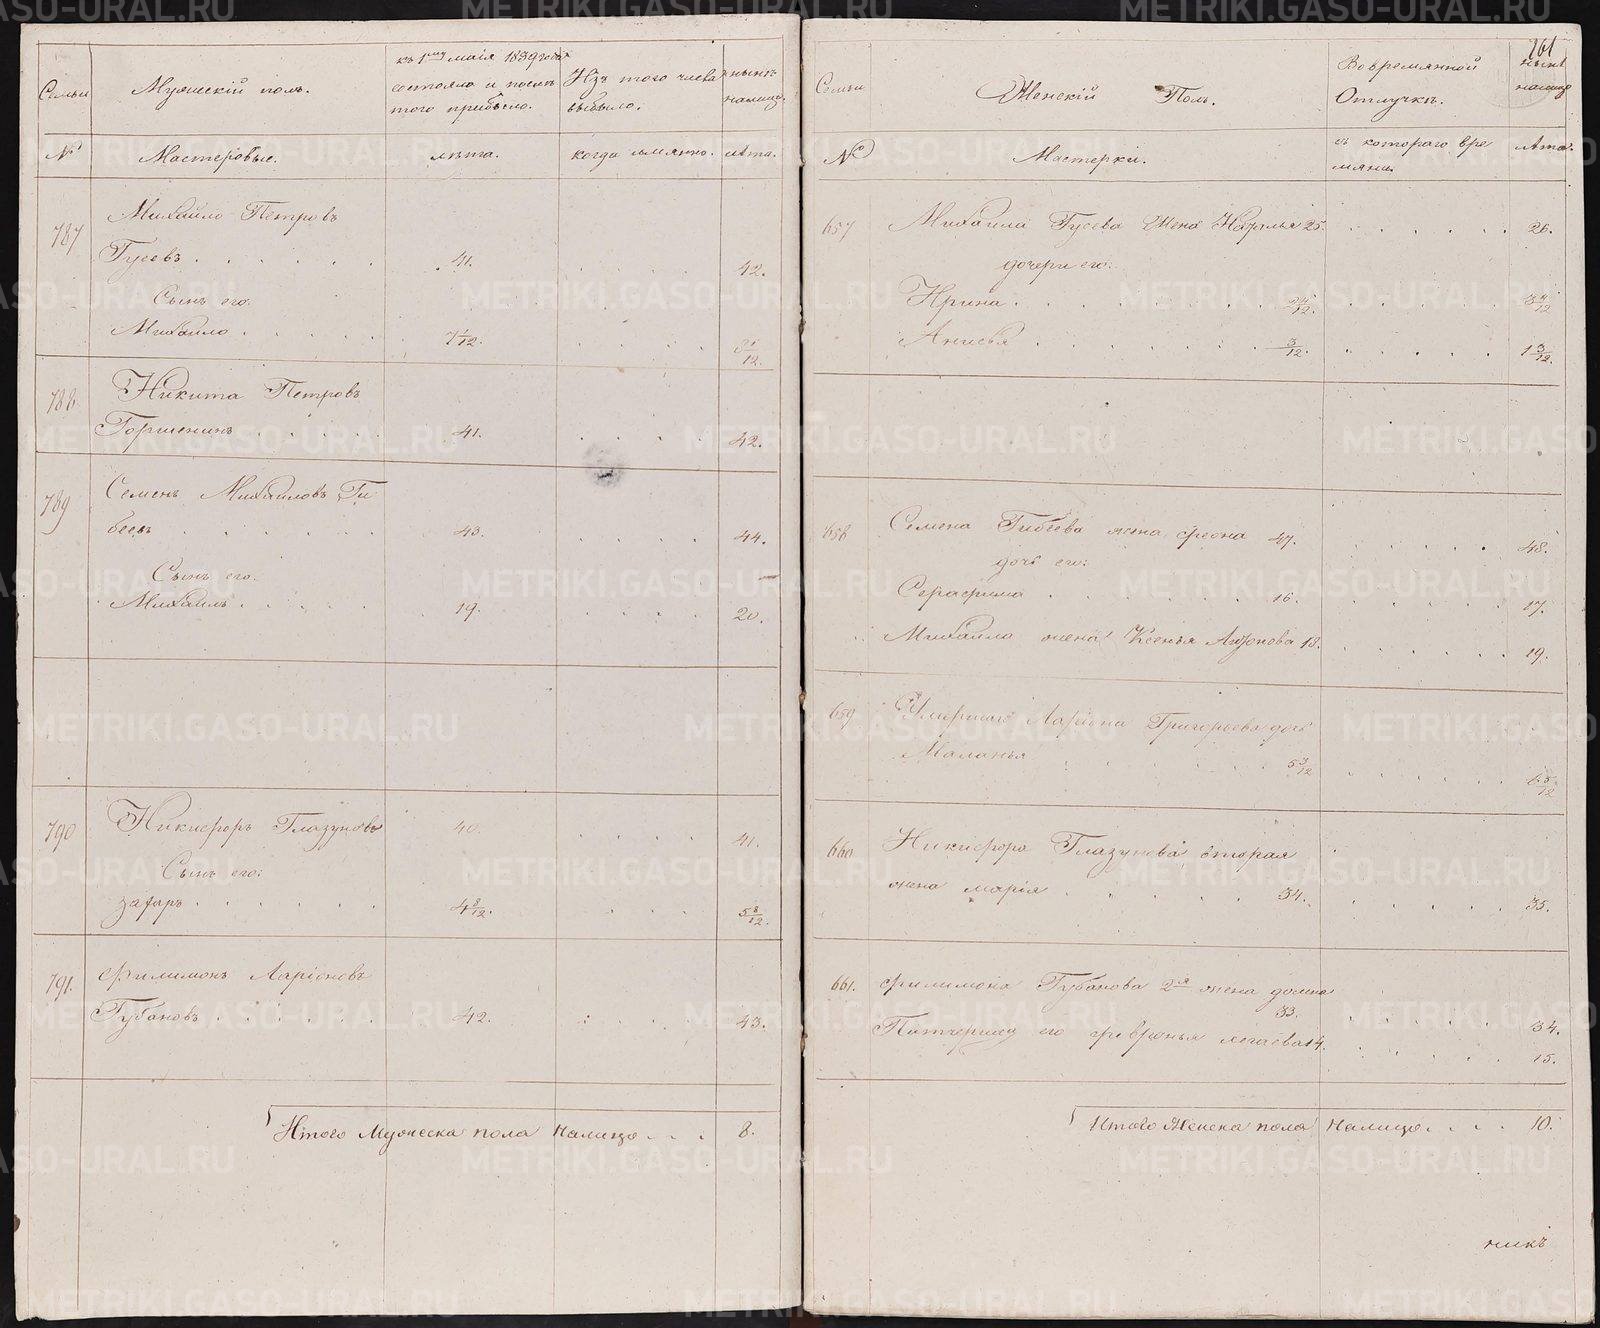 METRIKI.GASO-URAL.RU
Семьи
Мужескій полъ.
къ 1му маія 1839 года
состояло и послѣ
того прибыло.
Изъ того числа
выбыло.
нынѣ
налицо.
№
Мастеровые.
лѣта.
когда имянно.
лѣта.
787
Михайло Петровъ
Гусевъ . . . . . . 41. . . . . 42.
Сынъ его.
Михайло . . . . . 7 1/12 . . . . 8 1/12
788
Никита Петровъ
Горшенинъ . . . . . 41. . . . . 42.
789
Семенъ Михайловъ Ги
беевъ . . . . . . 43. . . . . 44.
Сынъ его.
Михаилъ . . . . . 19. . . . . 20.
790
Никифоръ Глазуновъ 40. . . . . 41.
Сынъ его:
Захаръ . . . . . . 4 8/12. . . . . 5 8/12.
791.
Филимонъ Ларіоновъ
Губановъ . . . . . . 42. . . . . 43.
Итого Мужеска пола налицо . . . 8.
261
Семьи
Женскій Полъ.
Вовремянной
Отлучкѣ.
нынѣ
налицо
№
Мастерки.
съ котораго вре
мяни.
лѣта.
657
Михаила Гусева Жена Наталья 25. . . . . . . 26.
дочери его:
Ирина . . . . . . . 2 4/12. . . . . . . 3 4/12
Анисья . . . . . . . 3/12. . . . . . . 1 3/12.
658
Семена Гибеева жена Феона 47. . . . . . . 48.
дочь его:
Серафима . . . . . . 16. . . . . . . 17.
Михайло жена Ксенья Антонова 18. . . . . . . 19.
659
Умершаго Ларіона Григорьева дочь
Маланья . . . . . . 5 5/12 . . . . . . 6 5/12
660
Никифора Глазунова вторая
жена марія . . . . . 34. . . . . . . 35.
661.
Филимона Губанова 2я жена домна
33. . . . . . . 34.
Патчерица его февронья 14. . . . . . 15.
Итого Женска пола налицо . . . . 10.
никъ